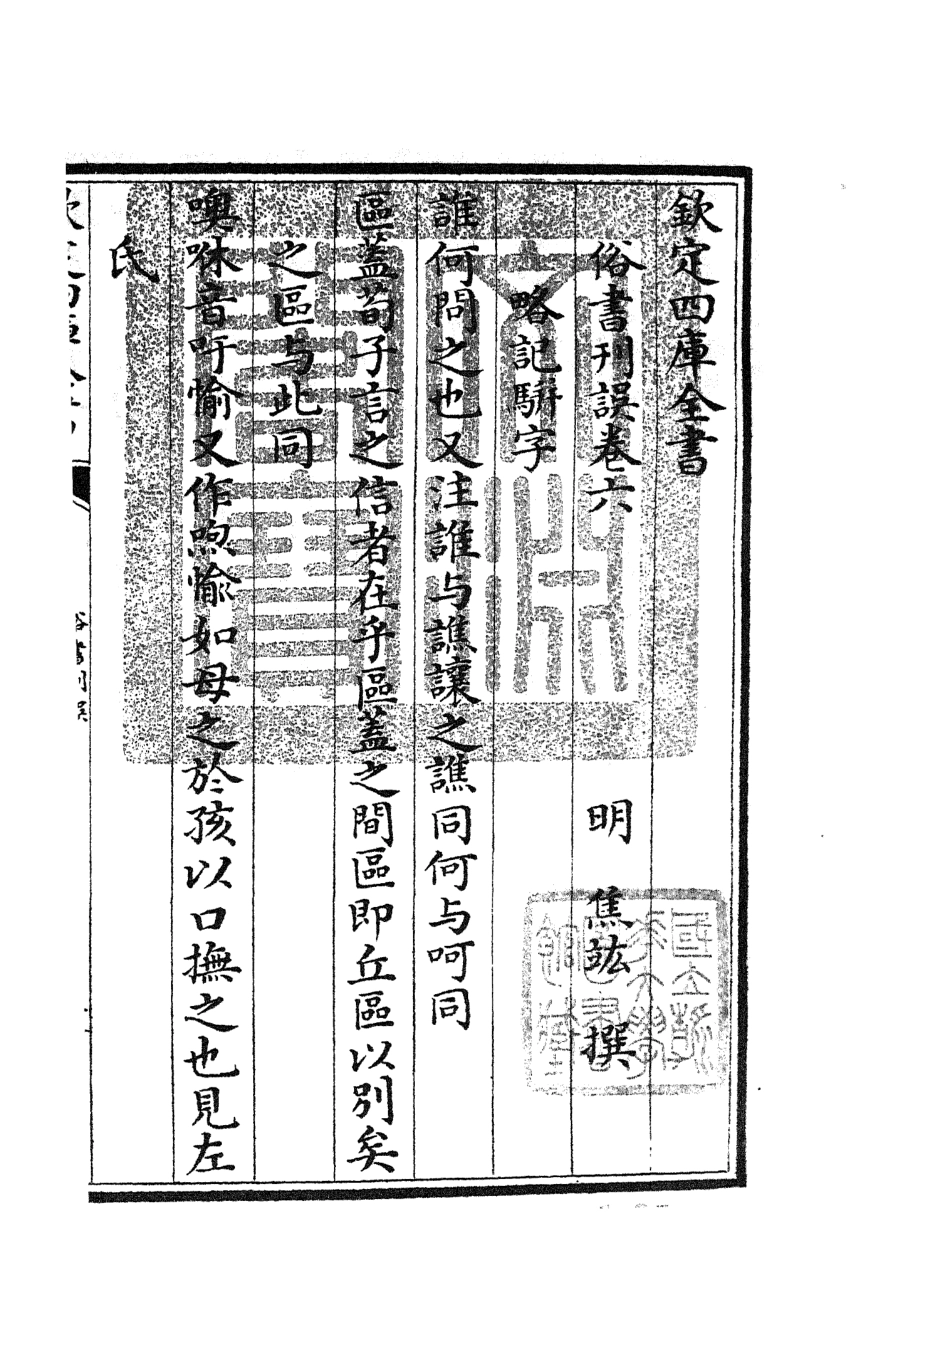 欽定四庫全書
俗書刊誤卷六
明　焦竑　撰
略記駢字
誰何問之也又注誰与譙讓之譙同何与呵同
區蓋荀子言之信者在乎區蓋之間區即丘區以別矣
之區与此同
噢咻音吁愉又作喣愉如母之於孩以口撫之也見左
氏
俗書刊誤